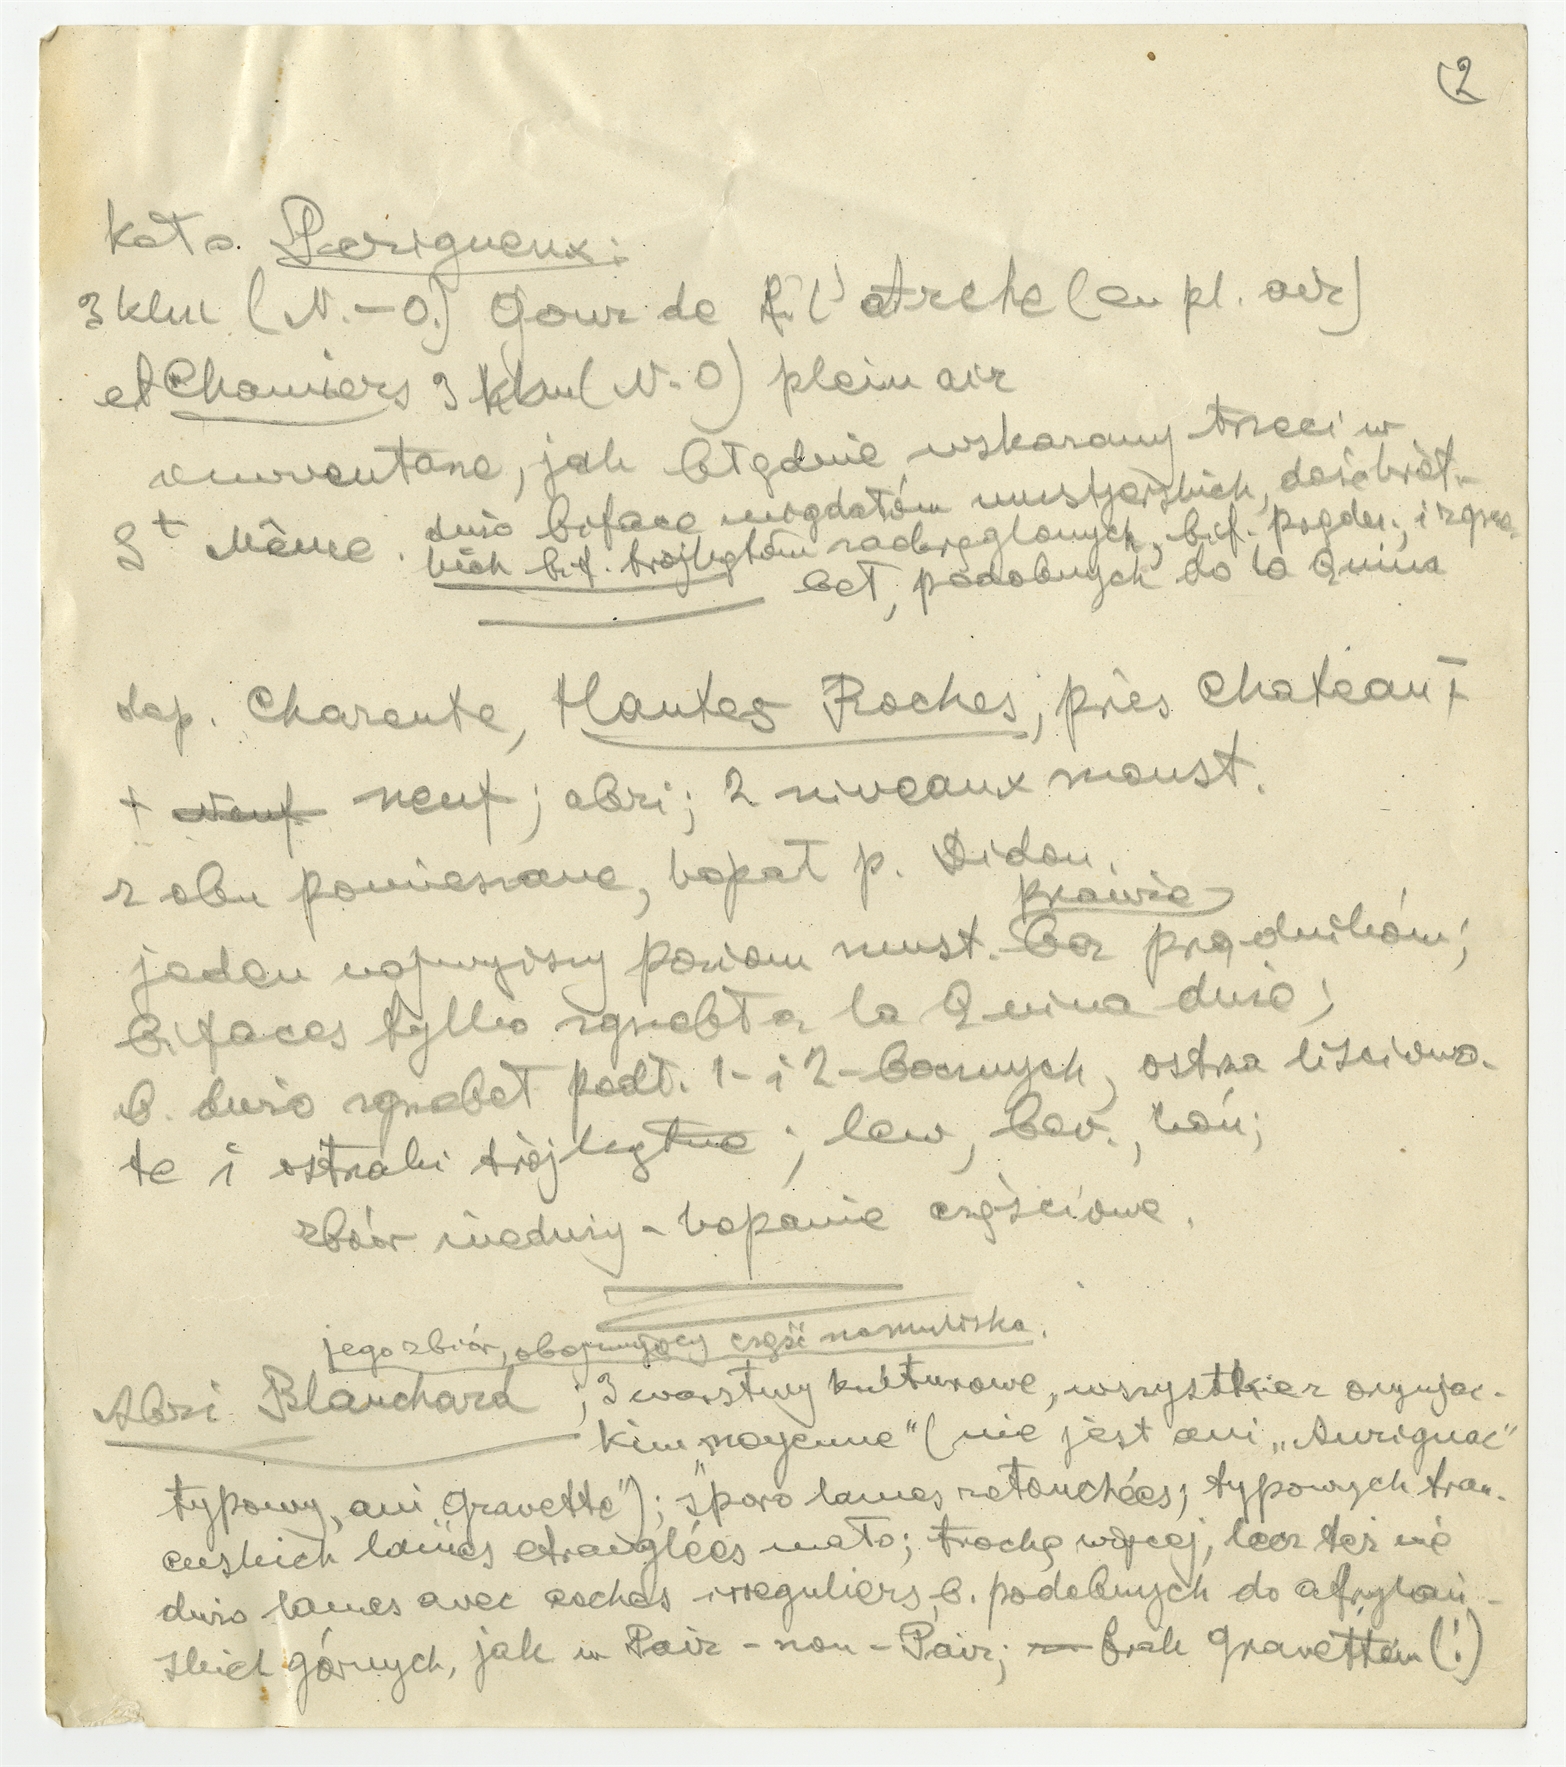 2
koło Perigueux:
3 klm (N.-O.) Gour de l'arche (en pl. air)
et Chamiers 3 klm (N-O) plein air
zinwentarz, jak błędnie wskazany trzeci w
St Même. dużo biface migdałów mustjerskich, dość krót-
kich bif. trójkątów zaokrąglonych, bif. prądn., i zgrze
beł, podobnych do la Quina
dep. Charente, Hautes Roches, près Chateau +
+ neuf; abri; 2 niveaux moust.
z obu pomieszane, kopał p. Didon.
prawie
jeden najwyższy poziom must. bez prądników;
bifaces tylko zgrzebła la Quina dużo;
b. dużo zgrzebeł podł. 1- i 2-bocznych, ostrza liściowa-
te i ostrza ki trójkątne; lew, bov., koń;
zbiór nieduży - kopanie częściowe.
jego zbiór, obejmujący część namuliska.
Abri Blanchard; 3 warstwy kulturowe, wszystkie z orynjac-
kim "moyenne" (nie jest ani „Aurignac"
typowy, ani "Gravette"); sporo lames retouchées; typowych fran-
cuskich lames etranglées mało; trochę więcej, lecz też nie
dużo lames avec coches irreguliers, b. podobnych do afrykań-
skich górnych, jak w Pair-non-Pair; brak Gravettów (!)